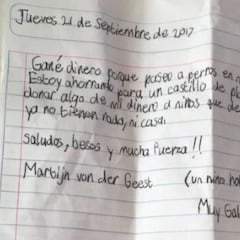 Jueves 21 de Septiembre de 2017
Gané dinero porque paseo a perros en
Estoy ahorrando para un castillo de
donar algo de mi dinero a niños que
ya no tienen nada, ni casa.
saludos, besos y mucha fuerza!!
Martijn van der Geest (un niño
Muy